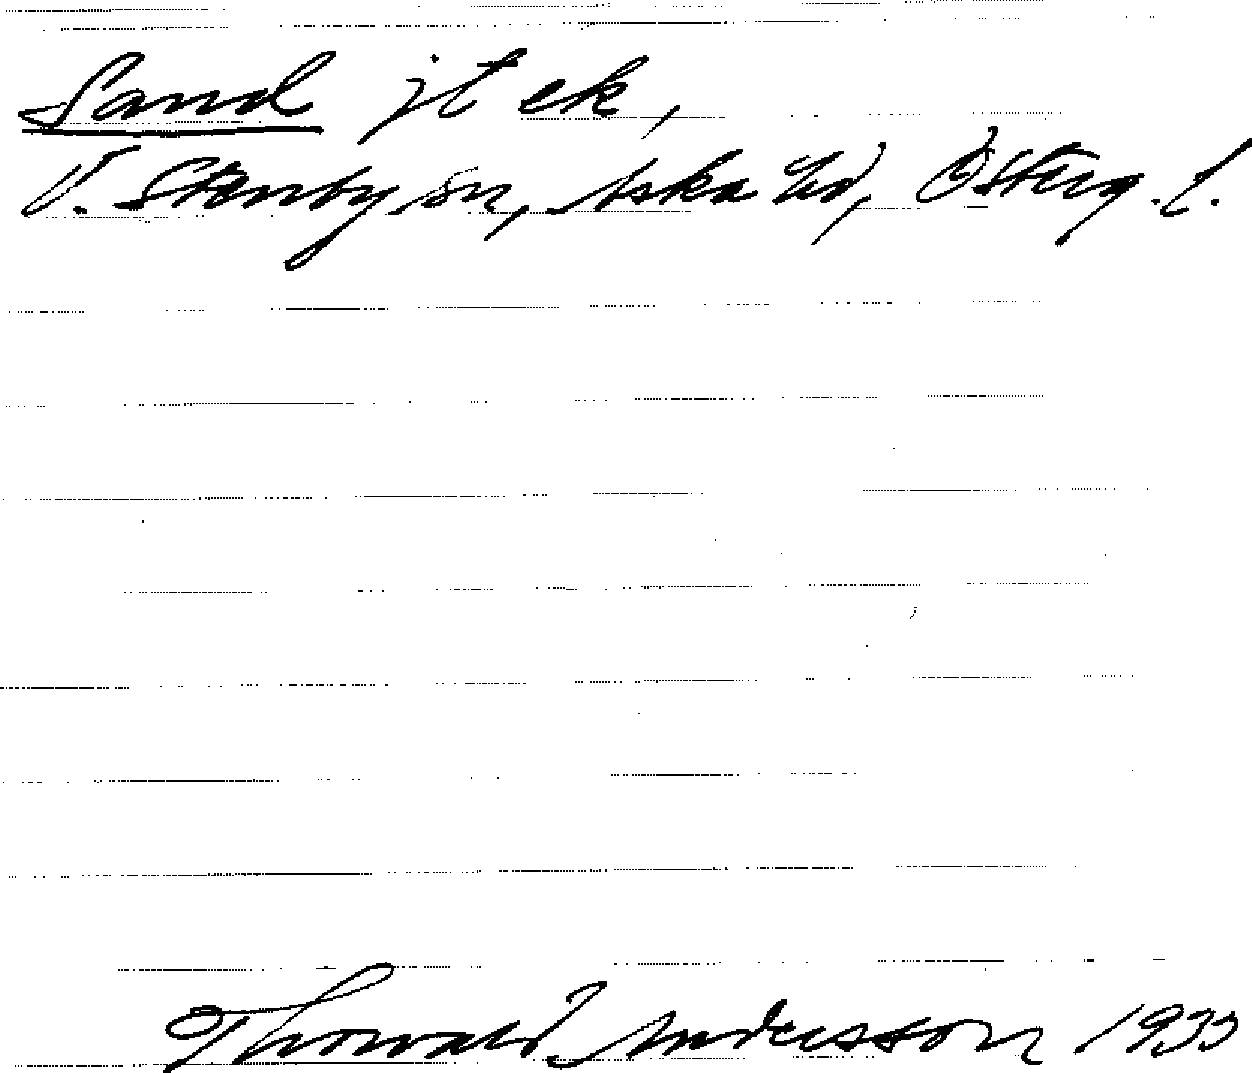 Sand jt ek,
V. Stenby sn, Aska hd, Österg. l.
Thorvald Andersson 1933